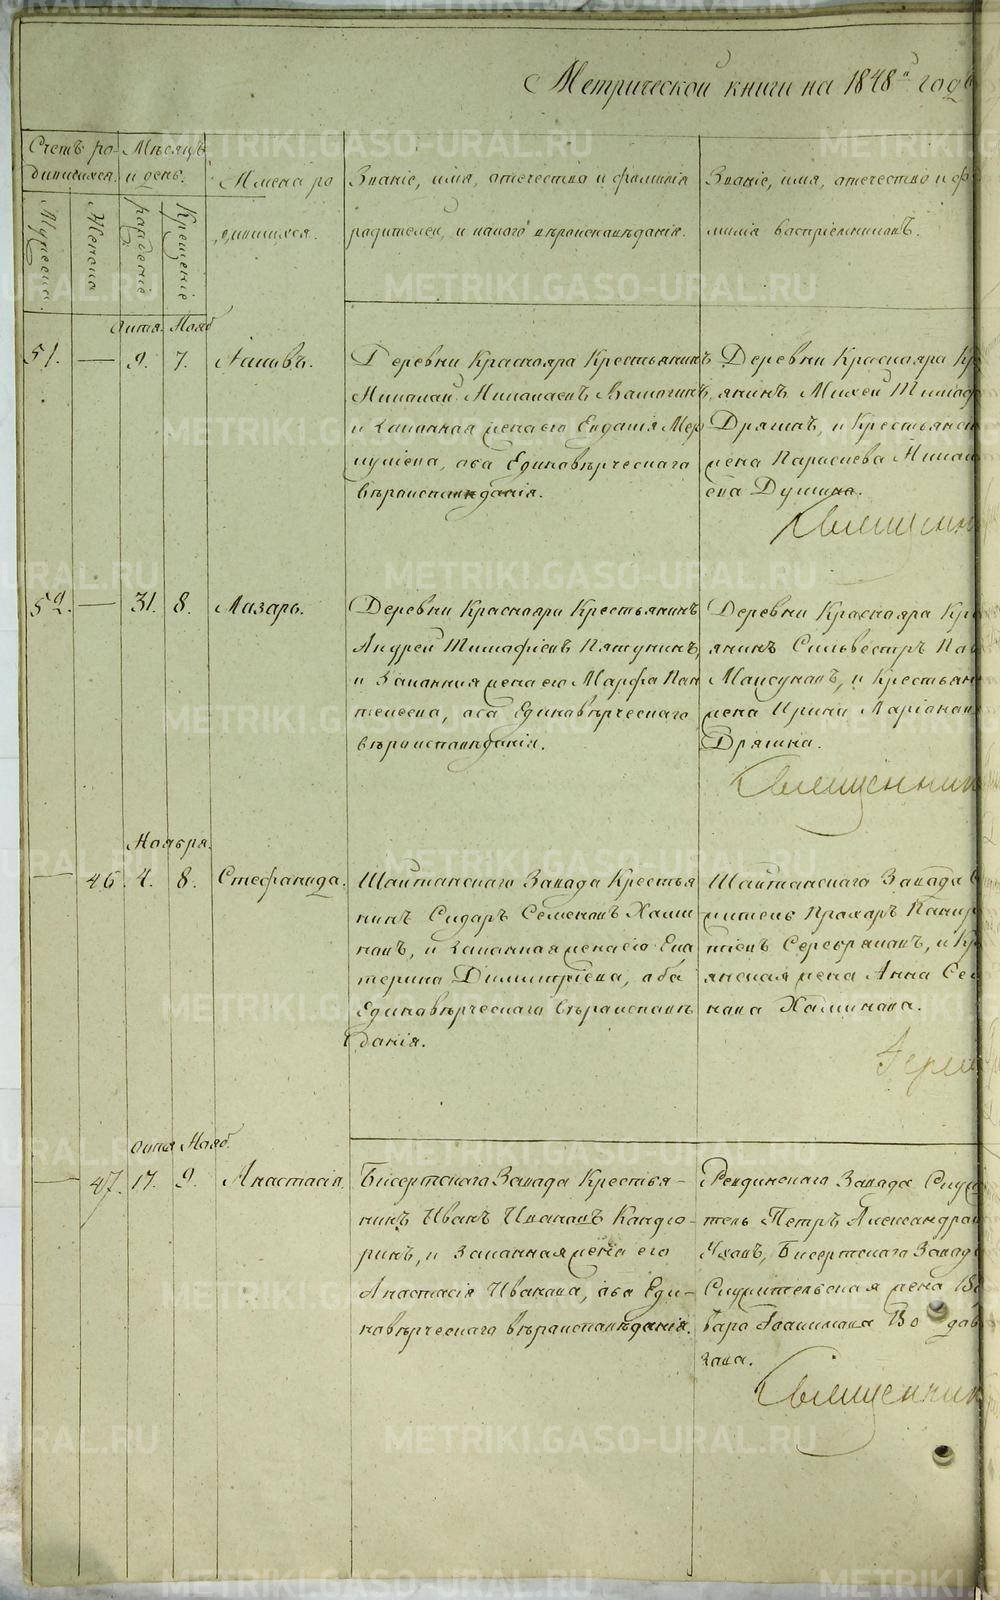 Метрической книги на 1848й годъ
Счетъ ро-
дившихся.
Мѣсяцъ
и день.
Имена ро
дившихся.
Званіе, имя, отечество и фамилія
родителей, и какого вѣроисповѣданія.
Званіе, имя, отечество и фа
милія воспріемниковъ.
Мужеска.
Женска
рожденіе
Крещеніе
Октя. Нояб
51. — 9. 7. Іаковъ.
Деревни Краснояра Крестьянинъ
Николай Николаевъ
и законная жена его Евдокія Мер
куріева, оба Единовѣрческаго
вѣроисповѣданія.
Деревни Краснояра Кр
янинъ Михей Тимоф
Дрягинъ, и Крестьянск
жена Параскева Никол
ева Душина.
Священни
52. — 31. 8. Лазарь.
Деревни Краснояра Крестьянинъ
Андрей Тимофіевъ Пятунинъ,
и Законная жена его Марфа Пан
телеева, оба Единовѣрческаго
вѣроисповѣданія.
Деревни Краснояра Кре
янинъ Сильвестръ Пав
и Крестьян
жена Ирина Ларіонов
Дрягина.
Священник
Ноября.
— 46. 4. 8. Стефанида.
Шайтанскаго Завода Крестья
нинъ Сидаръ Семеновъ Хами
новъ, и законная жена его Ека
терина Димитріева, оба
Единовѣрческаго вѣроисповѣ
данія.
Шайтанскаго Завода С
житель Прохаръ Панкр
тіевъ Серебряковъ, и Кр
янская жена Анна Се
нова Хаминова.
Октя. Нояб.
— 47. 17. 9. Анастасія.
Бисертскаго Завода Крестья-
нинъ Иванъ Ивановъ Кандю-
ринъ, и Законная жена его
Анастасія Иванова, оба Еди-
новѣрческаго вѣроисповѣданія.
Ревдинскаго Завода Служ
тель Петръ Александро
Уховъ, Бисертскаго Завод
Служительская жена Ва
вара Іоакимова
Священник